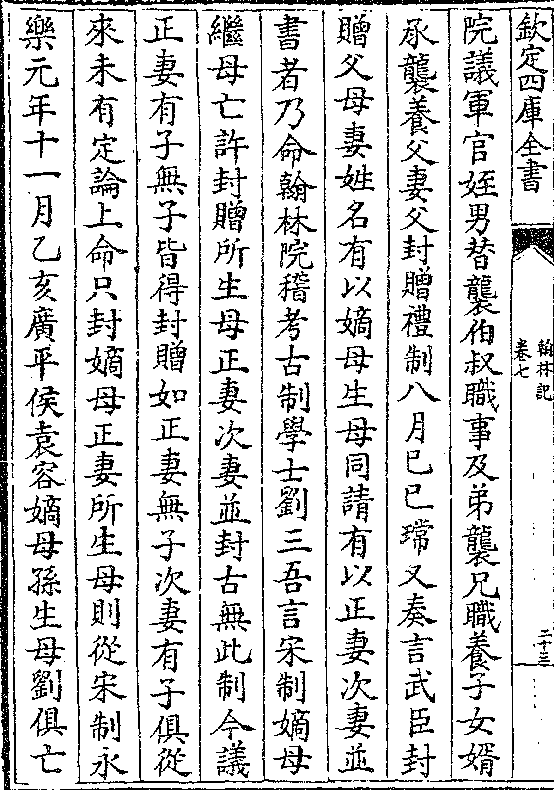 欽定四庫全書
翰林記
卷七
二十三
院議軍官姪男替襲伯叔職事及弟襲兄職養子女婿
承襲養父妻父封贈禮制八月己巳瑺又奏言武臣封
贈父母妻姓名有以嫡母生母同請有以正妻次妻並
書者乃命翰林院稽考古制學士劉三吾言宋制嫡母
繼母亡許封贈所生母正妻次妻並封古無此制今議
正妻有子無子皆得封贈如正妻無子次妻有子俱從
來未有定論上命只封嫡母正妻所生母則從宋制永
樂元年十一月乙亥廣平侯袁容嫡母孫生母劉俱亡